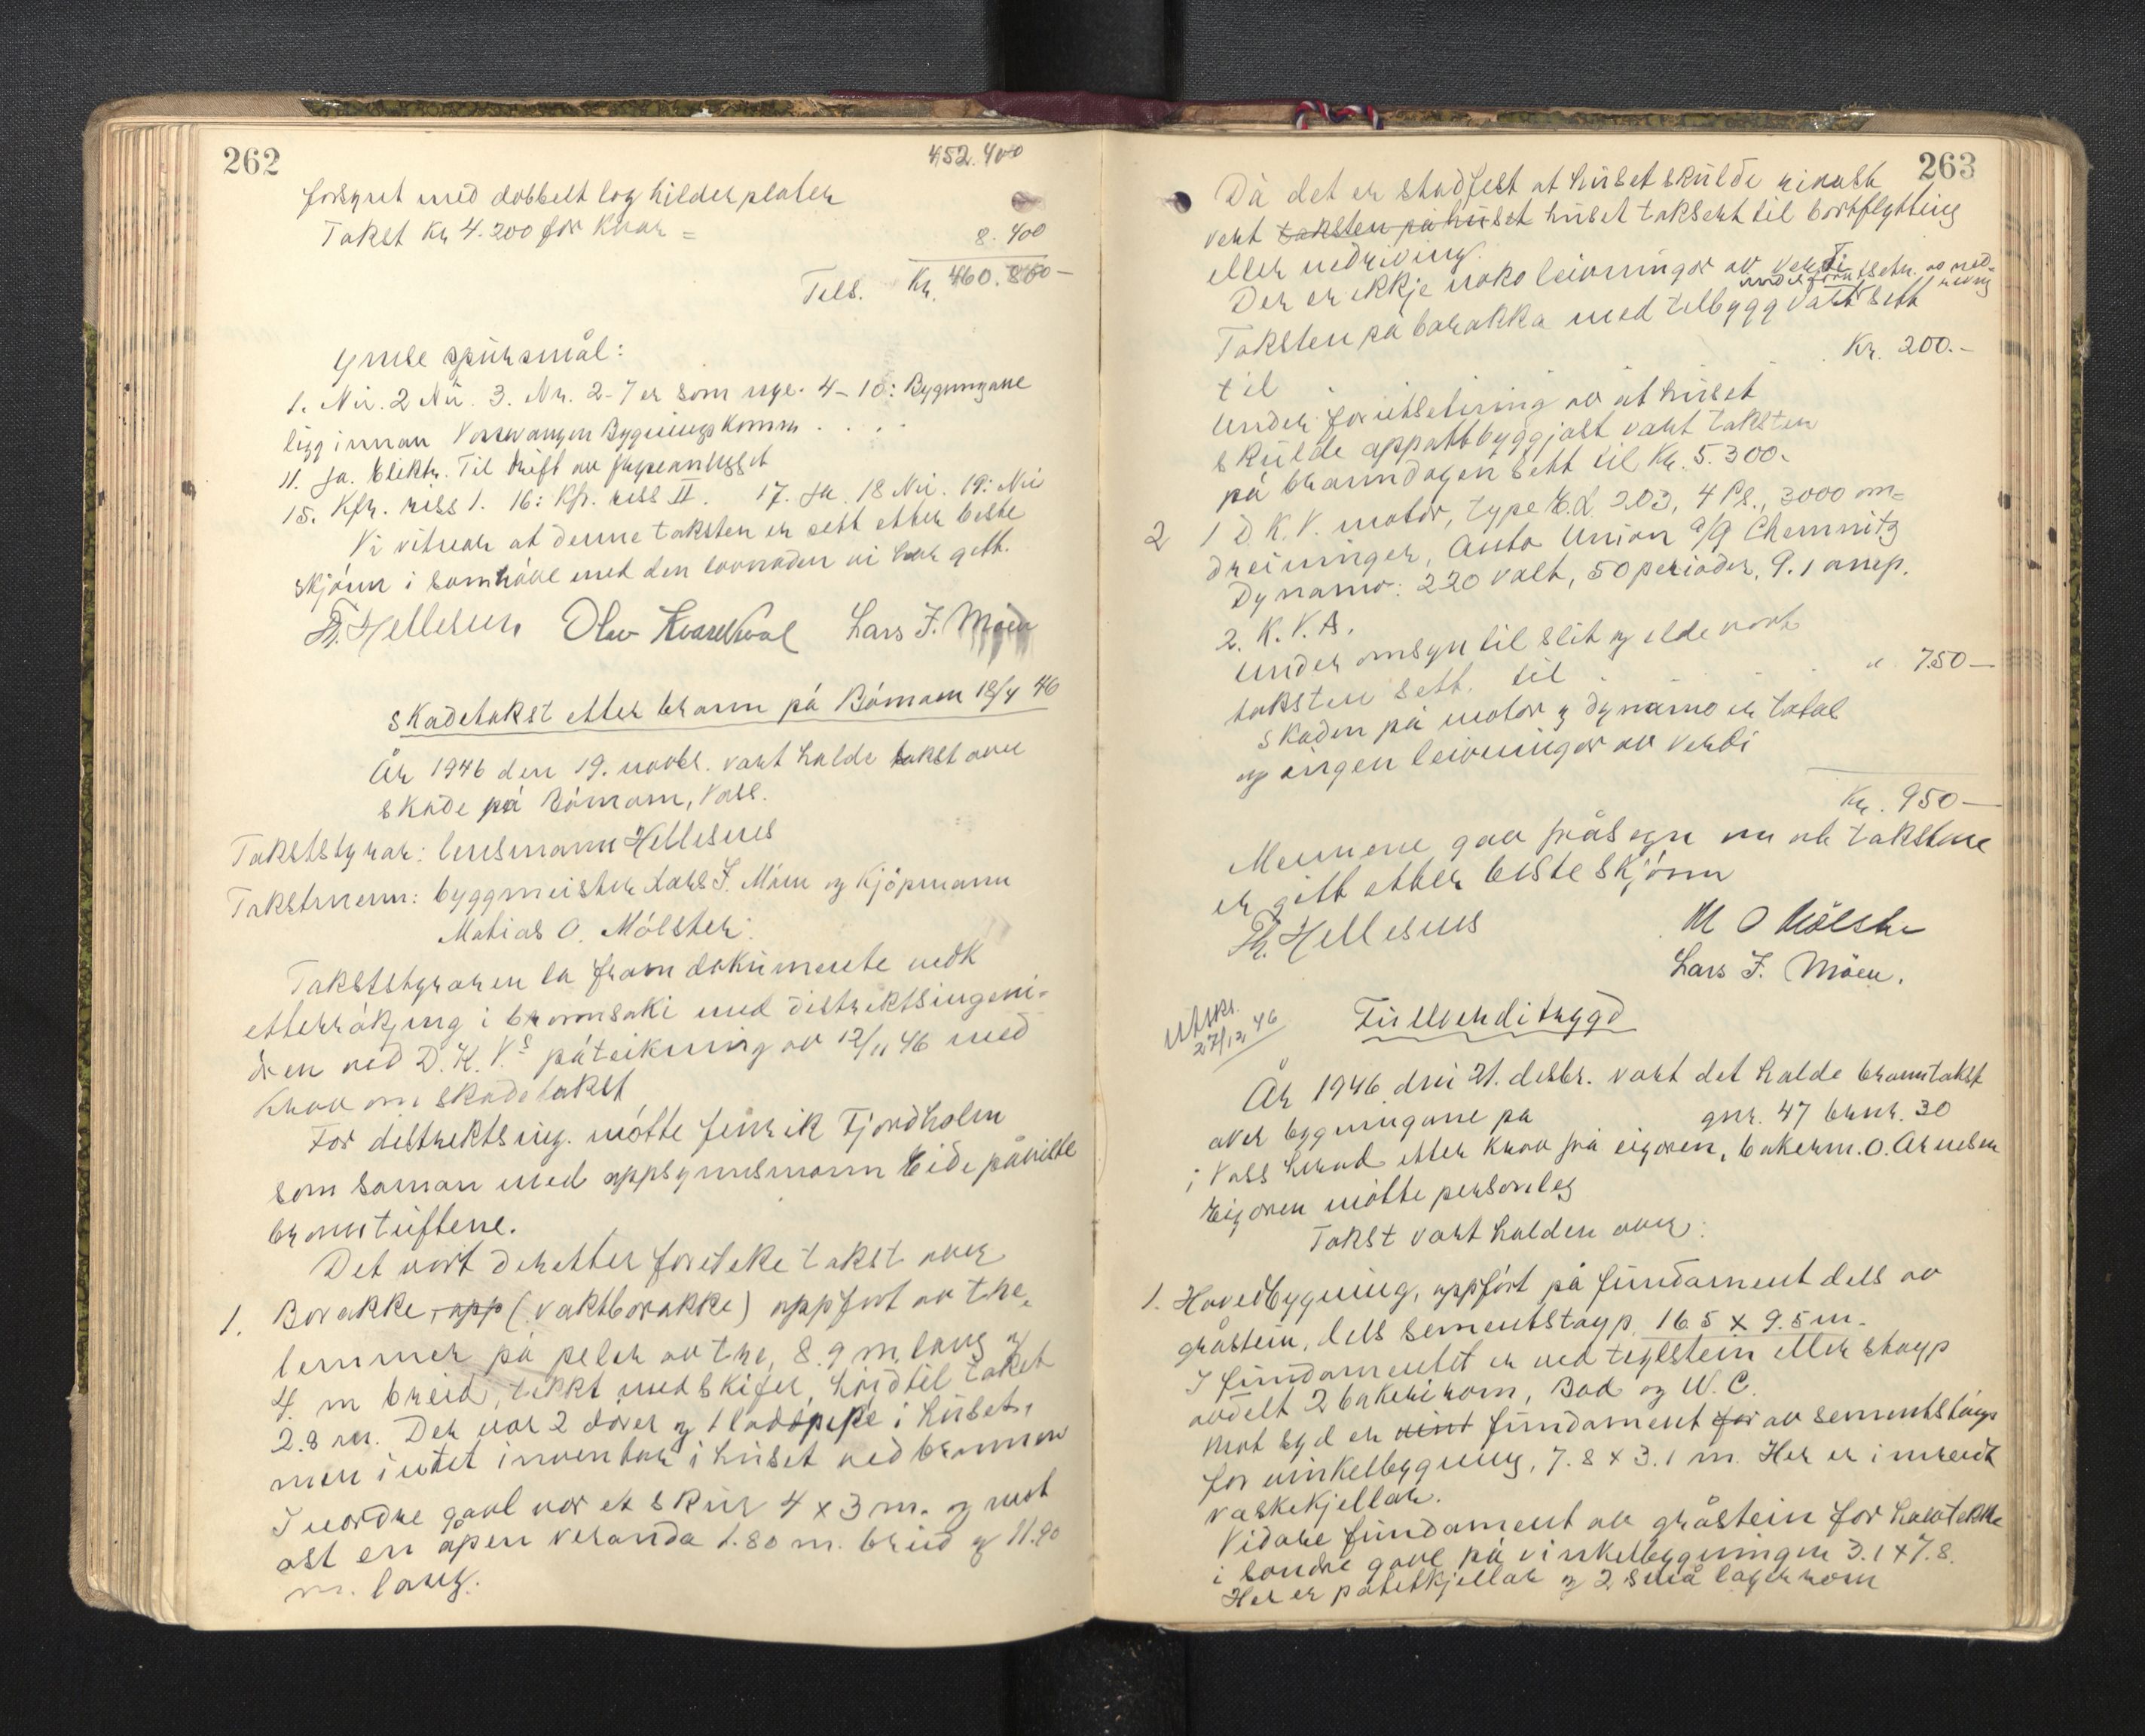 262
452.400
forsynt med dobbelt lag hilderplater
Takst Kr 4.200 for kvar = 8.400
Tils. Kr. 460.800—
Ymse spursmål:
1. Nei. 2 Nei. 3. Nr. 2-7 er som nye. 4-10: Bygningane
ligg innan Vossevangen Bygnings Komm . . . .
11. Ja. Elektr. Til drift av
15. Kfr. riss 1. 16: Kfr. riss II. 17. Ja. 18 Nei. 19: Nei
Vi vitnar at denne taksten er sett etter beste
skjønn i samhøve med den lovnaden vi har gett.
Th. Hellesnes Olav Lars J. Møen
Skadetakst etter brann på Bømoen 18/4 46
År 1946 den 19. novbr. vart halde takst over
skade på Bømoen, Voss.
Takststyrar: lensmann Hellesnes
Takstmenn: byggmeister Lars J. Møen og kjøpmann
Matias O. Mølster.
Takststyraren la fram dokumente vedk
etterrøkjing i brannsaki med distriktsingeni-
ören ved D.K.V.s påteikning av 12/11 46 med
krav om skadetakst
For distriktsing. møtte fenrik Fjordholm
som saman med oppsynsmann Eide påviste
branntuftene.
Det vart deretter foreteke takst over
1. Barakke, opp (vaktbarakke) oppført av tre-
lemmer på peler av tre, 8.9 m. lang og
4. m breid, tekt med skifer, høid til taket
2.8 m. Der var 2 dører og 1 ladd pipe i huset,
men intet inventar i huset ved brannen
I nordre gavl var et skur 4 x 3 m. og mot
ost en åpen veranda 1.80 m. breid og 11.90
m. lang.
263
Då det er stadfest at huset skulde
vert taksten på huset huset taksert til bortflytting
eller nedriving.
Der er ikkje noko leivningar av verdi
under forutsetn. av ned-
riving
Taksten på barakka med tilbygg vart sett
til Kr. 200.-
Under forutsetning av at huset
skulde oppattbyggjast vart taksten
på branndagen sett til Kr. 5.300.-
2 1 D.K.V. motor, type E.L. 203, 4 Ps., 3000 om=
dreininger, Auto Union a/g Chemnitz
Dynamo: 220 volt, 50 perioder, 9.1 amp.
2. K.V.A.
Under omsyn til slit og elde vart
taksten sett til . . . . " 750—
Skaden på motor og dynamo er total
og ingen leivningar av verdi
Kr. 950—
Mennene gav fråsegn um at takstane
er gitt etter beste skjønn
Th. Hellesnes M O Mølster
Lars J. Møen.
Utskr.
27/12 46
Fullverditrygd
År 1946 den 21. desbr. vart det halde branntakst
over bygningane på gnr. 47 brnr. 30
i Voss herad etter krav frå eigaren, bakerm. O. Arnesen
Eigaren møtte personleg
Takst vart halden over:
1. Hovedbygning, oppført på fundament dels av
gråstein, dels sementstøyp, 16.5 x 9.5 m.
I fundamentet er ved teglstein eller støyp
avdelt 2 bakerirom, Bad og W.C.
Mot syd er fundament for av sementstøyp
for vinkelbygning, 7.8 x 3.1 m. Her er innreidt
vaskekjellar.
Vidare fundament av gråstein for
i søndre gavl på vinkelbygningen 3.1 x 7.8.
Her er potetkjellar og 2 små lagerrom